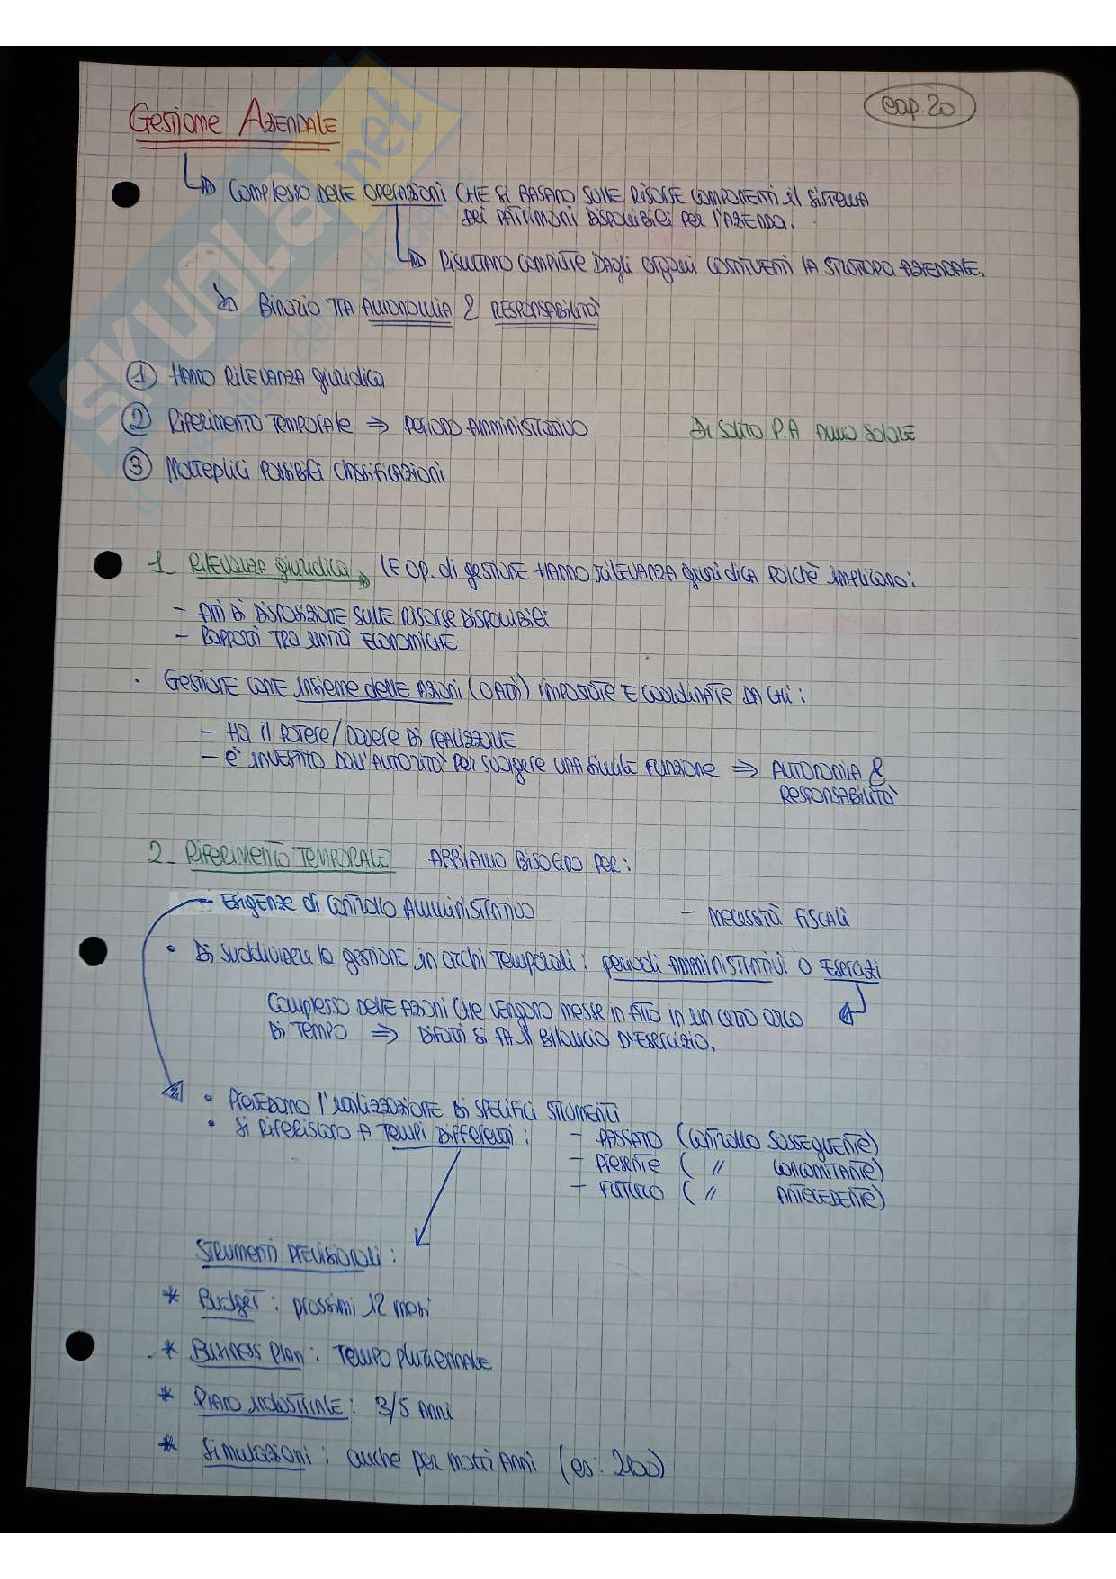 cap. 20
Gestione Aziendale
Complesso delle operazioni che si basano sulle risorse componenti il sistema
dei patrimoni disponibili per l'azienda.
Risultano compiute dagli organi costituenti la struttura aziendale.
Binario tra autonomia & responsabilità
① Hanno rilevanza giuridica
② Riferimento temporale ⇒ periodo amministrativo Di solito P.A anno solare
③ Molteplici possibili classificazioni
1_ Rilevanza giuridica Le op. di gestione hanno rilevanza giuridica poichè implicano:
- Atti di disposizione sulle risorse disponibili
- Rapporti tra unità economiche
· Gestione come insieme delle azioni (o atti) impostate e coordinate da chi:
- Ha il potere/dovere di realizzarle
- è investito dall'autorità per svolgere una simile funzione ⇒ autonomia &
responsabilità
2_ Riferimento temporale Abbiamo bisogno per:
- Esigenze di controllo amministrativo - necessità fiscali
• Di suddividere la gestione in archi temporali: periodi amministrativi o esercizi
Complesso delle azioni che vengono messe in atto in un certo arco
di tempo ⇒ Difatti si fa il bilancio d'esercizio.
• Prevedono l'realizzazione di specifici strumenti
• Si riferiscono a tempi differenti: - Passato (controllo susseguente)
- Presente ( " concomitante)
- Futuro ( " antecedente)
Strumenti previsionali:
* Budget: prossimi 12 mesi
* Business plan: tempo pluriennale
* Piano industriale: 3/5 anni
* Simulazioni: anche per molti anni (es: 2100)
SKUOLA.net